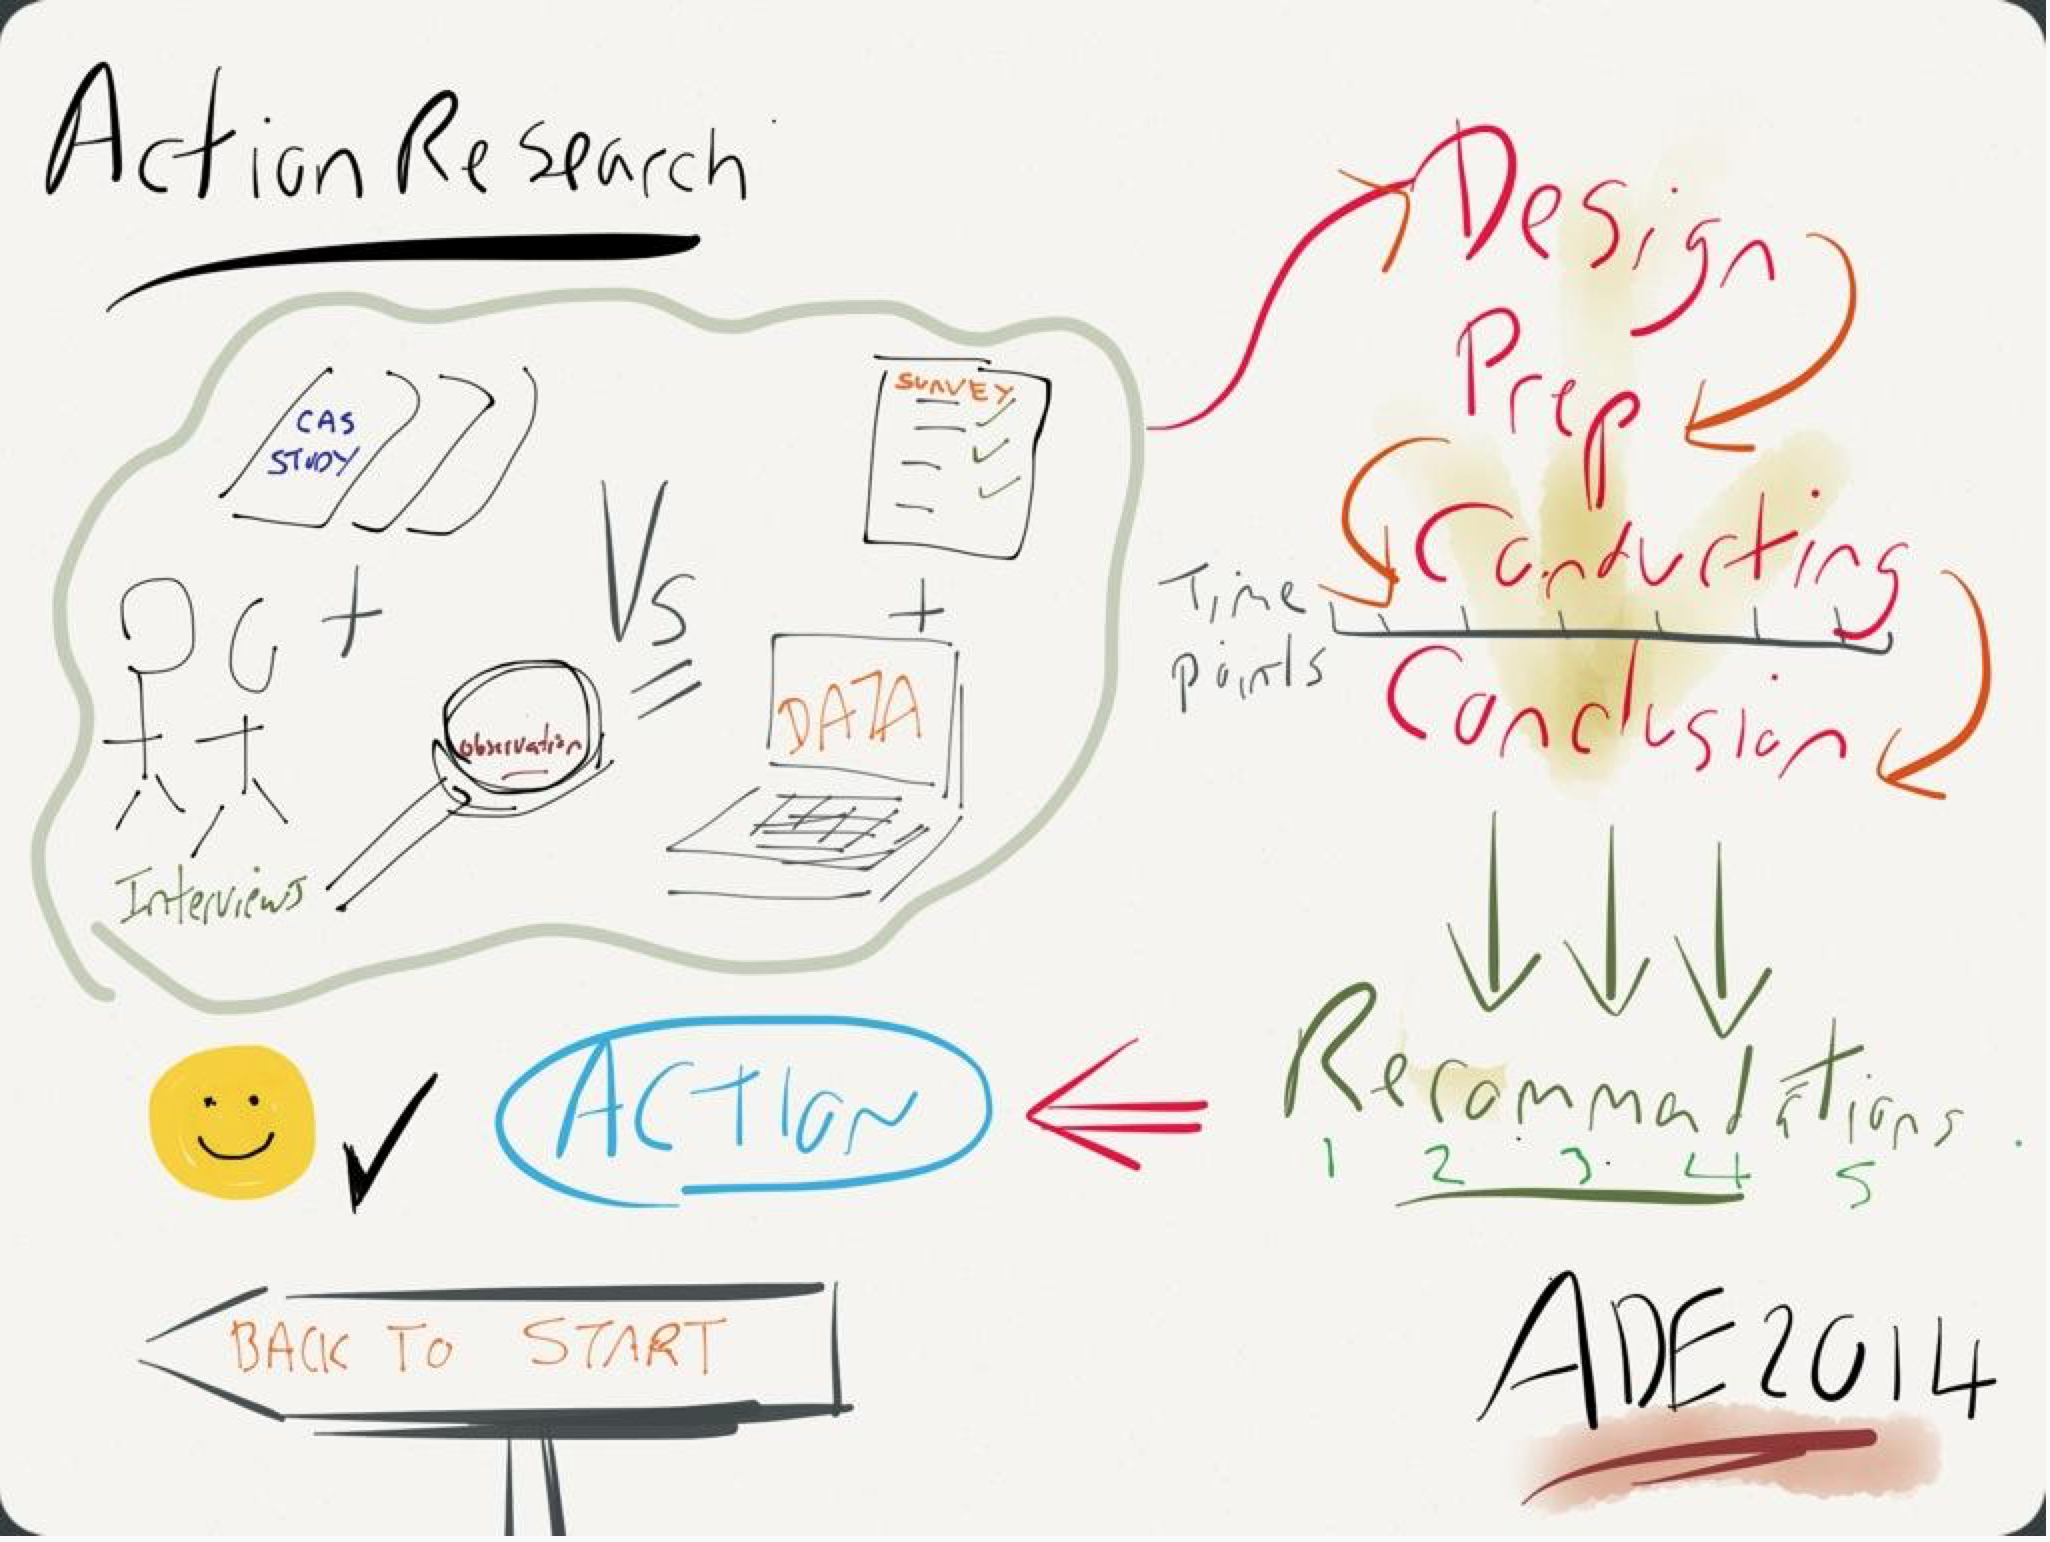 Action Research
CAS
STUDY
SURVEY
+
+
Vs
DATA
observation
Interviews
Design
Prep
Conducting
Time
points
Conclusion
Recommadations.
1 2 3 4 5
ACTION
BACK TO START
ADE2014